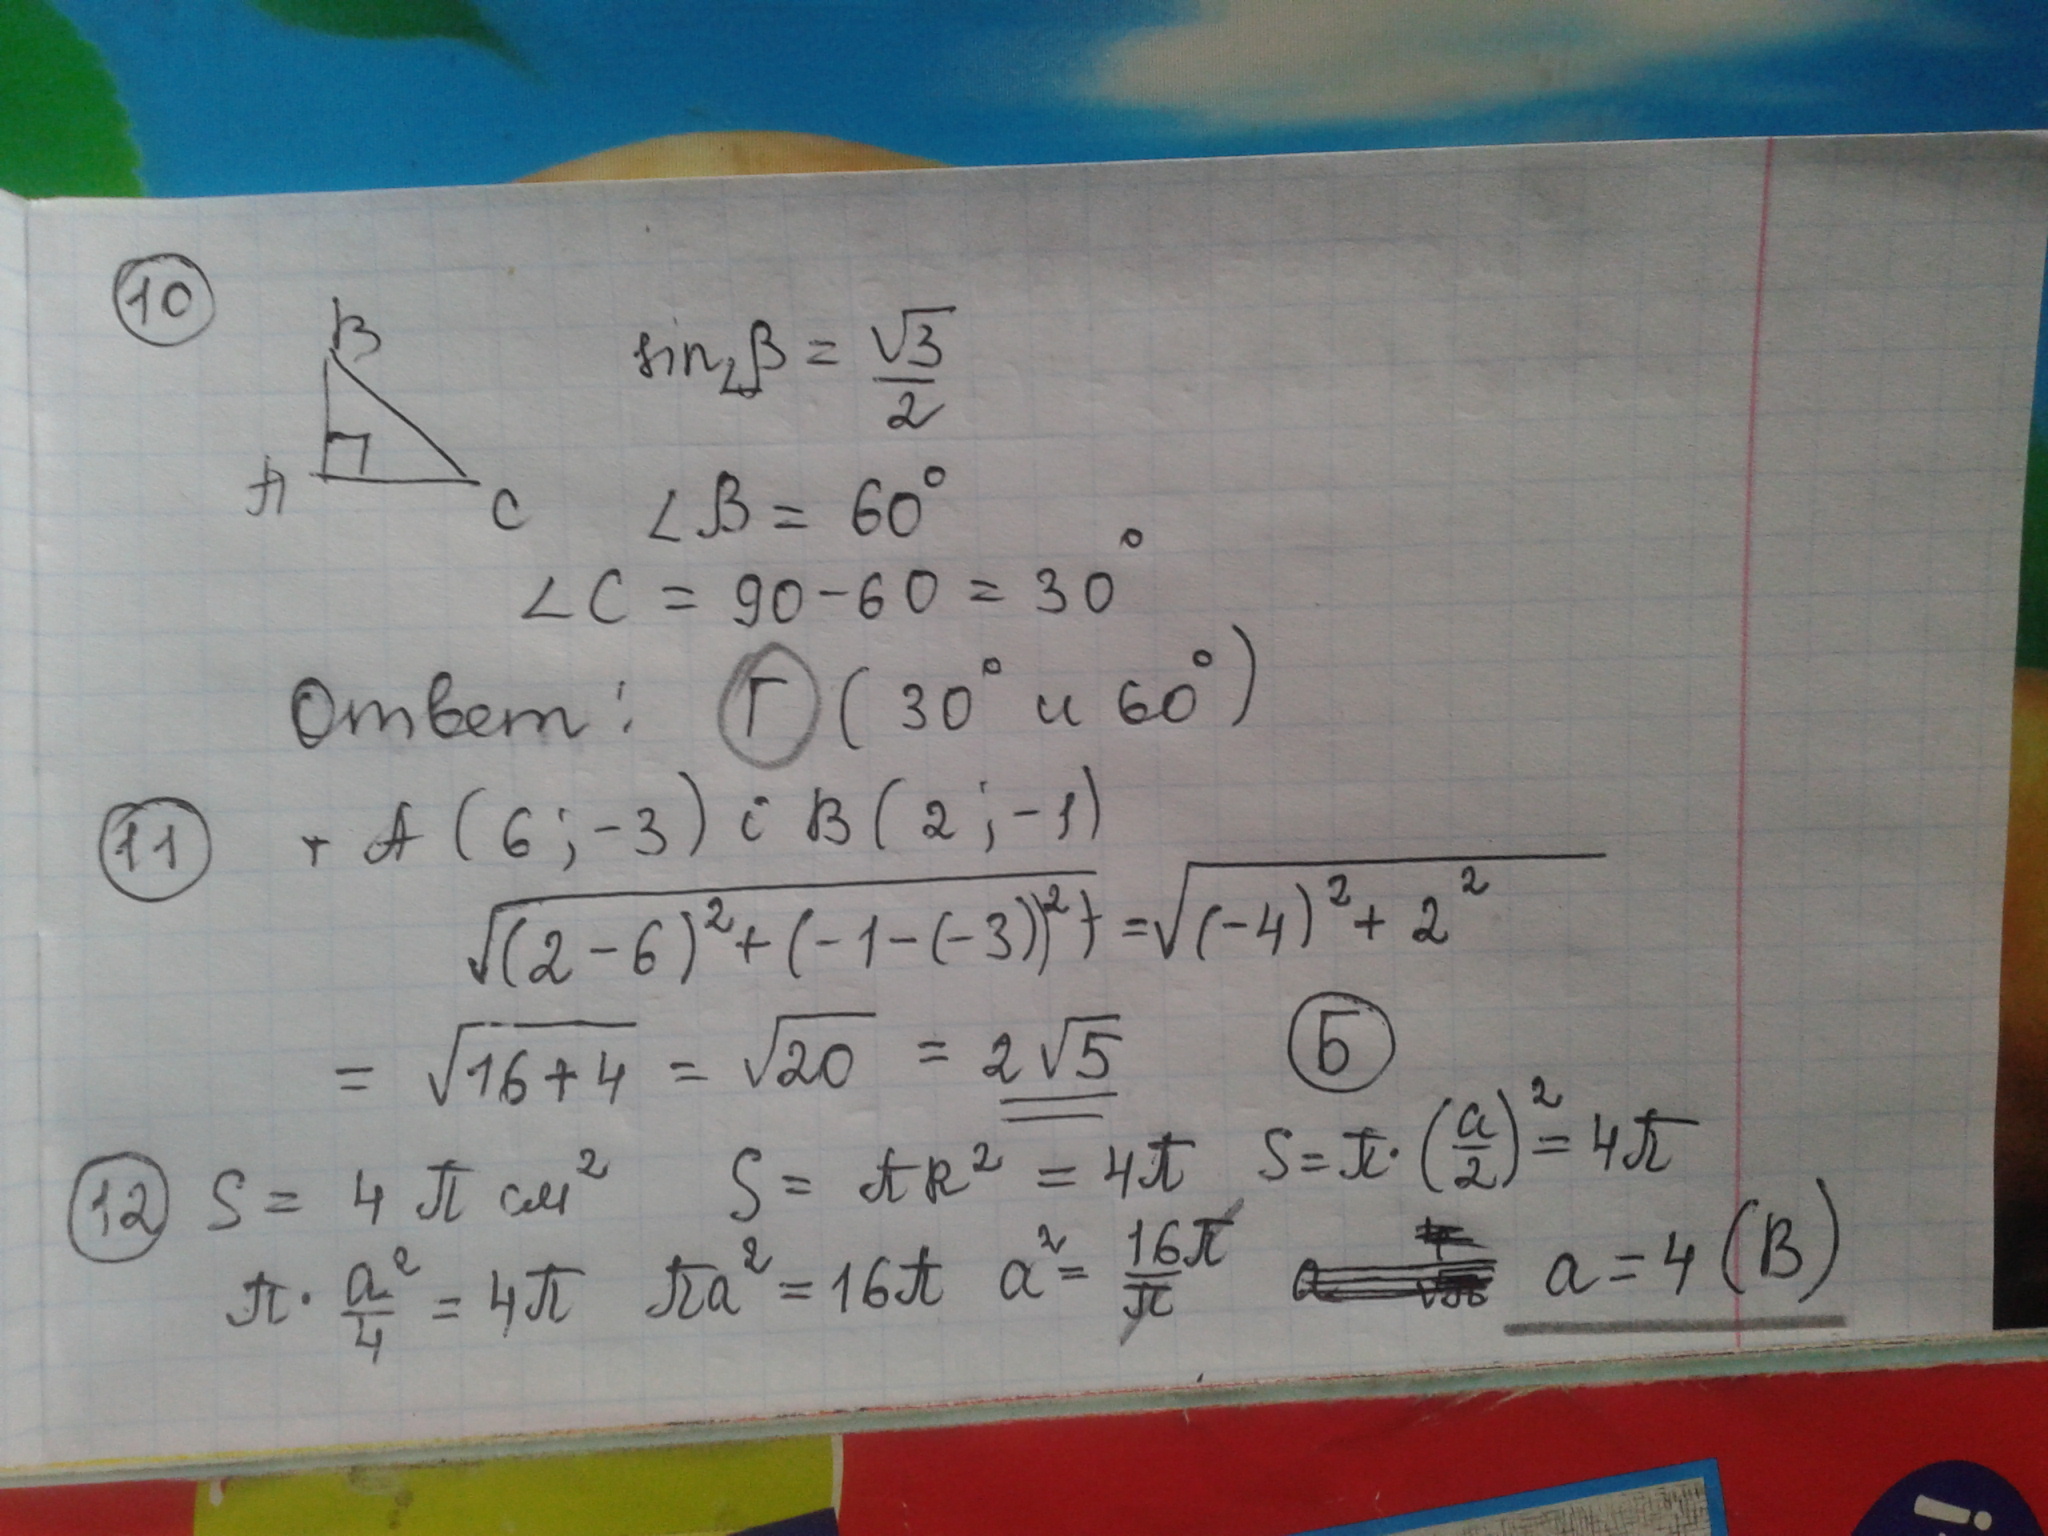 10
B
A
C
sin∠B = √3/2
∠B = 60°
∠C = 90-60 = 30°
Ответ: Г (30° и 60°)
11 т A (6; -3) і B (2; -1)
√((2-6)² + (-1-(-3))²) = √((-4)² + 2²)
= √(16+4) = √20 = 2√5 Б
12 S = 4π см² S = πR² = 4π S = π·(a/2)² = 4π
π· a²/4 = 4π πa² = 16π a² = 16π/π a = 4 (В)